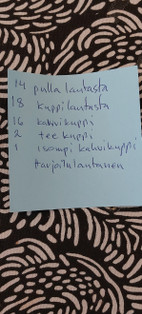 14 pulla lautasta
18 kuppilautasta
16 kahvikuppi
2 tee kuppi
1 isompi kahvikuppi
tarjoilulautanen